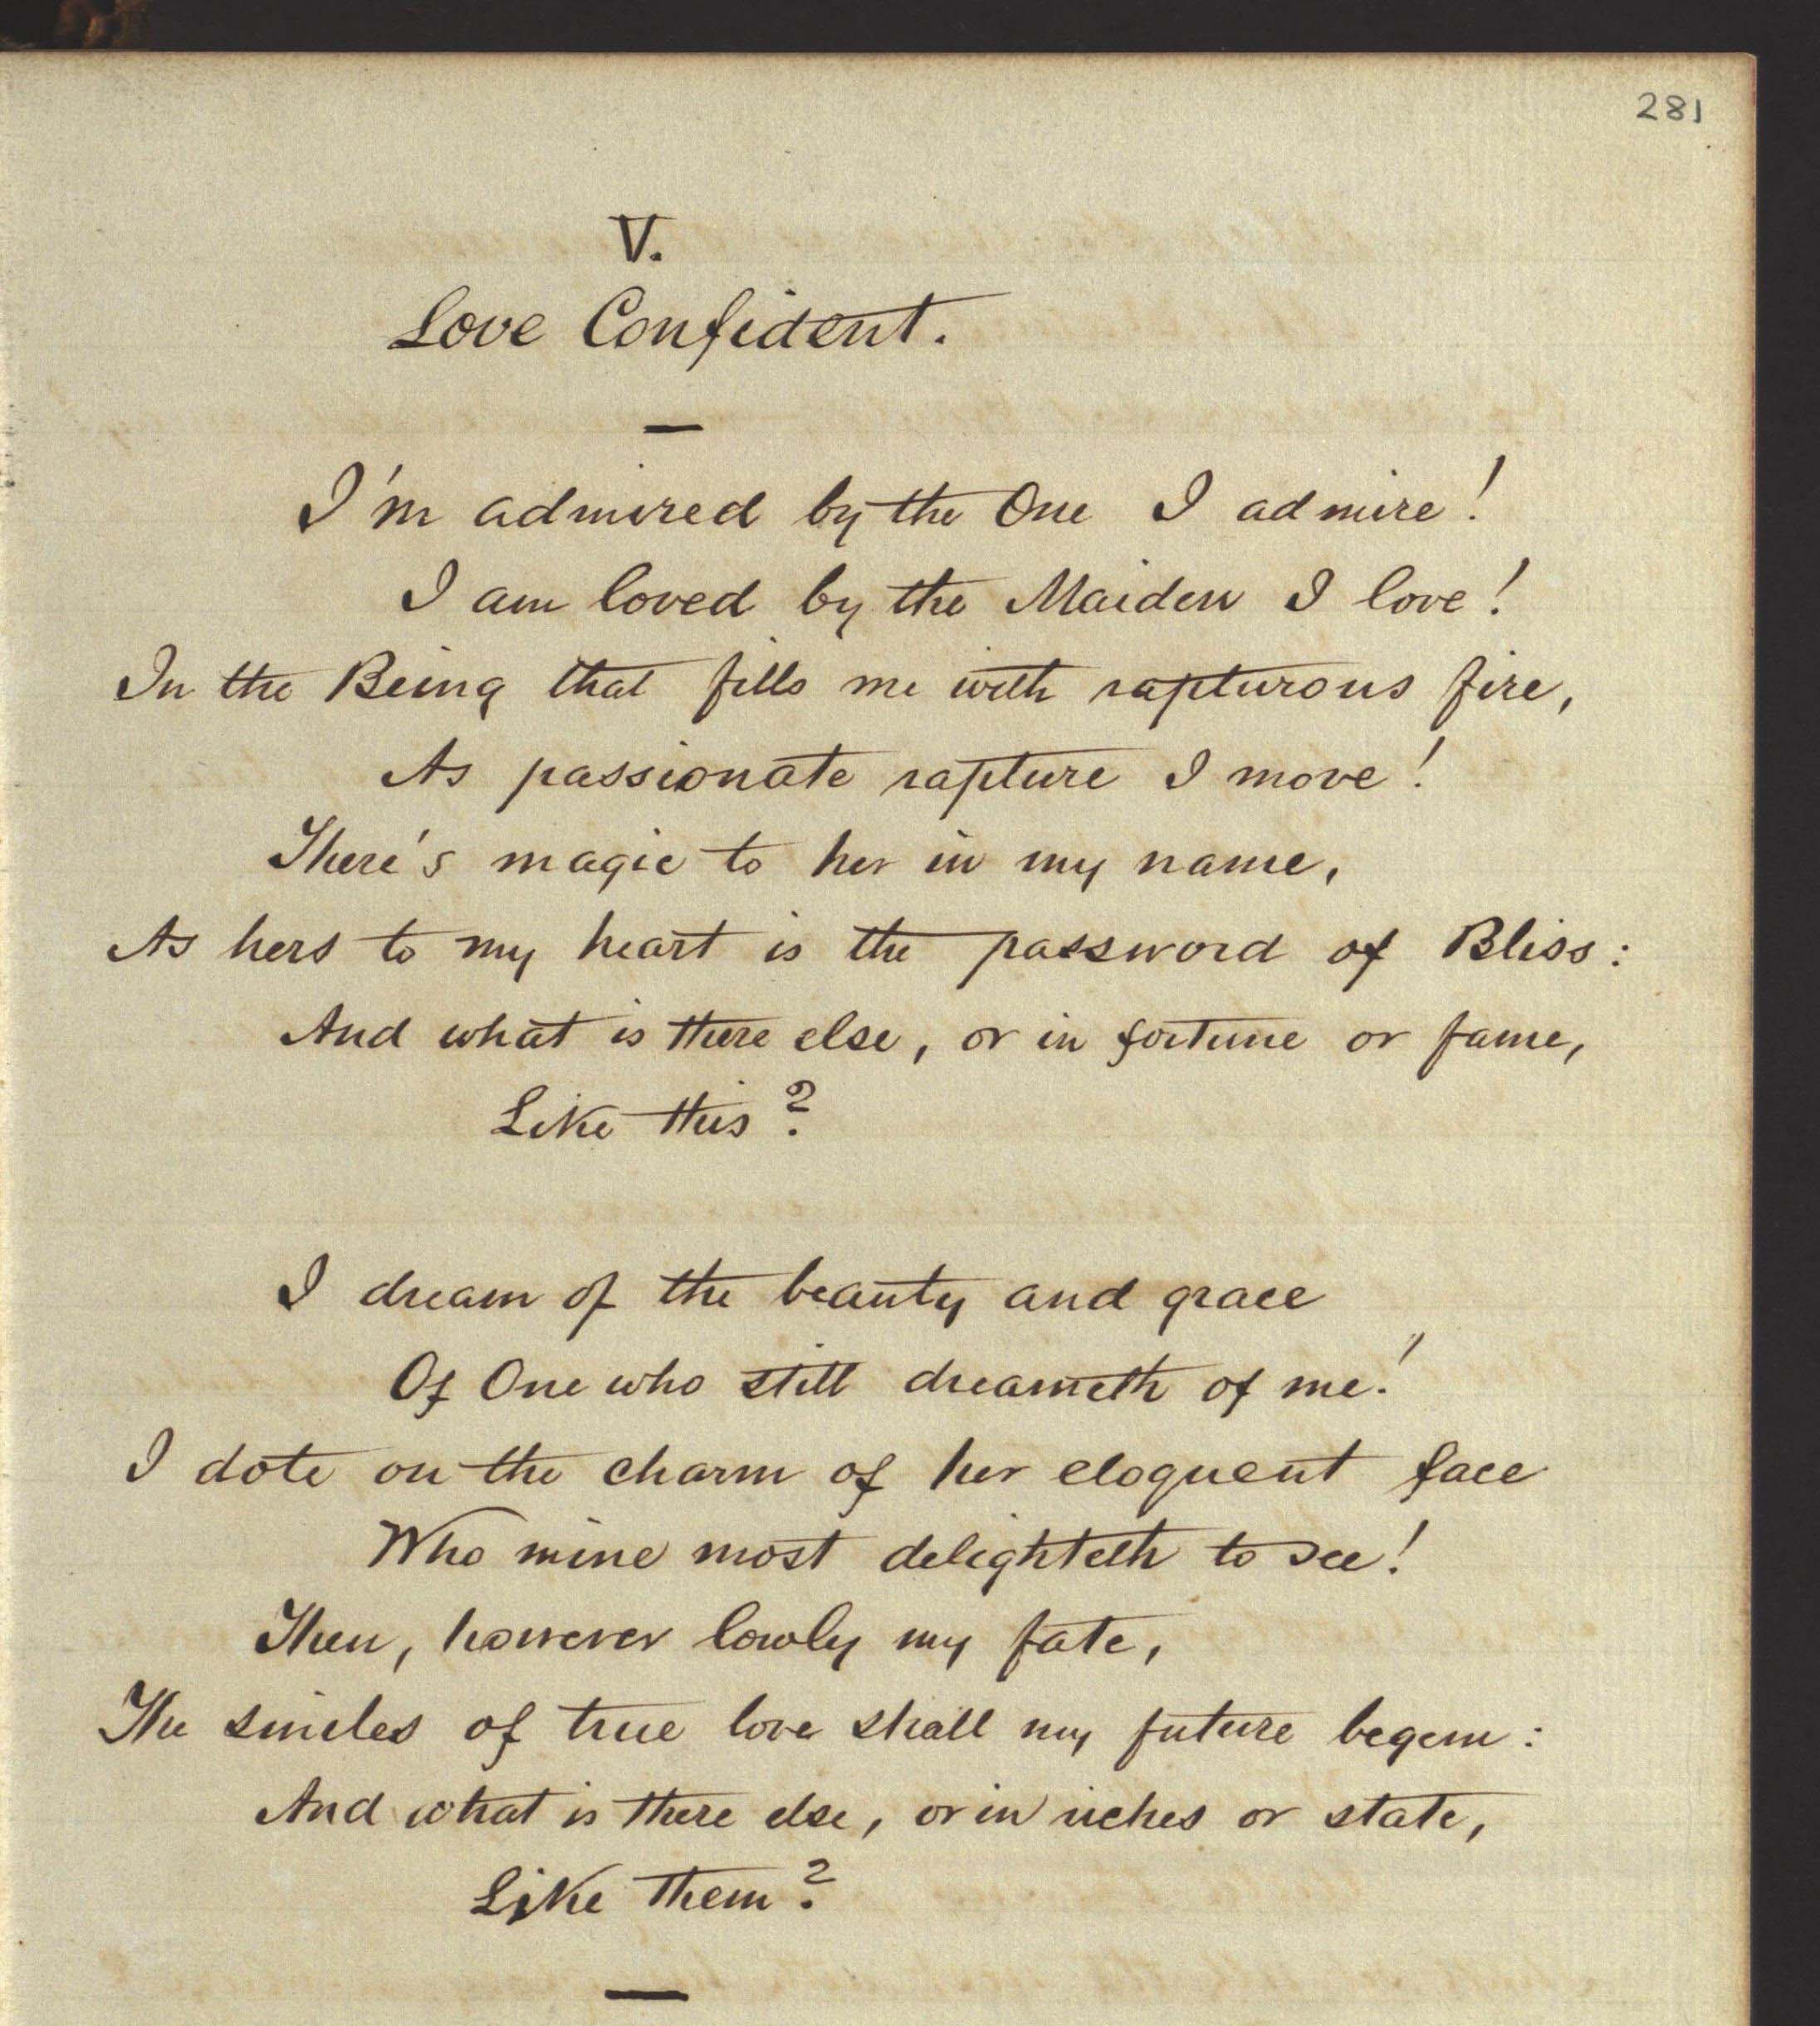 281
V.
Love Confident.
I'm admired by the One I admire!
I am loved by the Maiden I love!
In the Being that fills me with rapturous fire,
As passionate rapture I move!
There's magic to her in my name,
As hers to my heart is the password of Bliss:
And what is there else, or in fortune or fame,
Like this?
I dream of the beauty and grace
Of One who still dreameth of me!
I dote on the charm of her eloquent face
Who mine most delighteth to see!
Then, however lowly my fate,
The smiles of true love shall my future begem:
And what is there else, or in riches or state,
Like them?